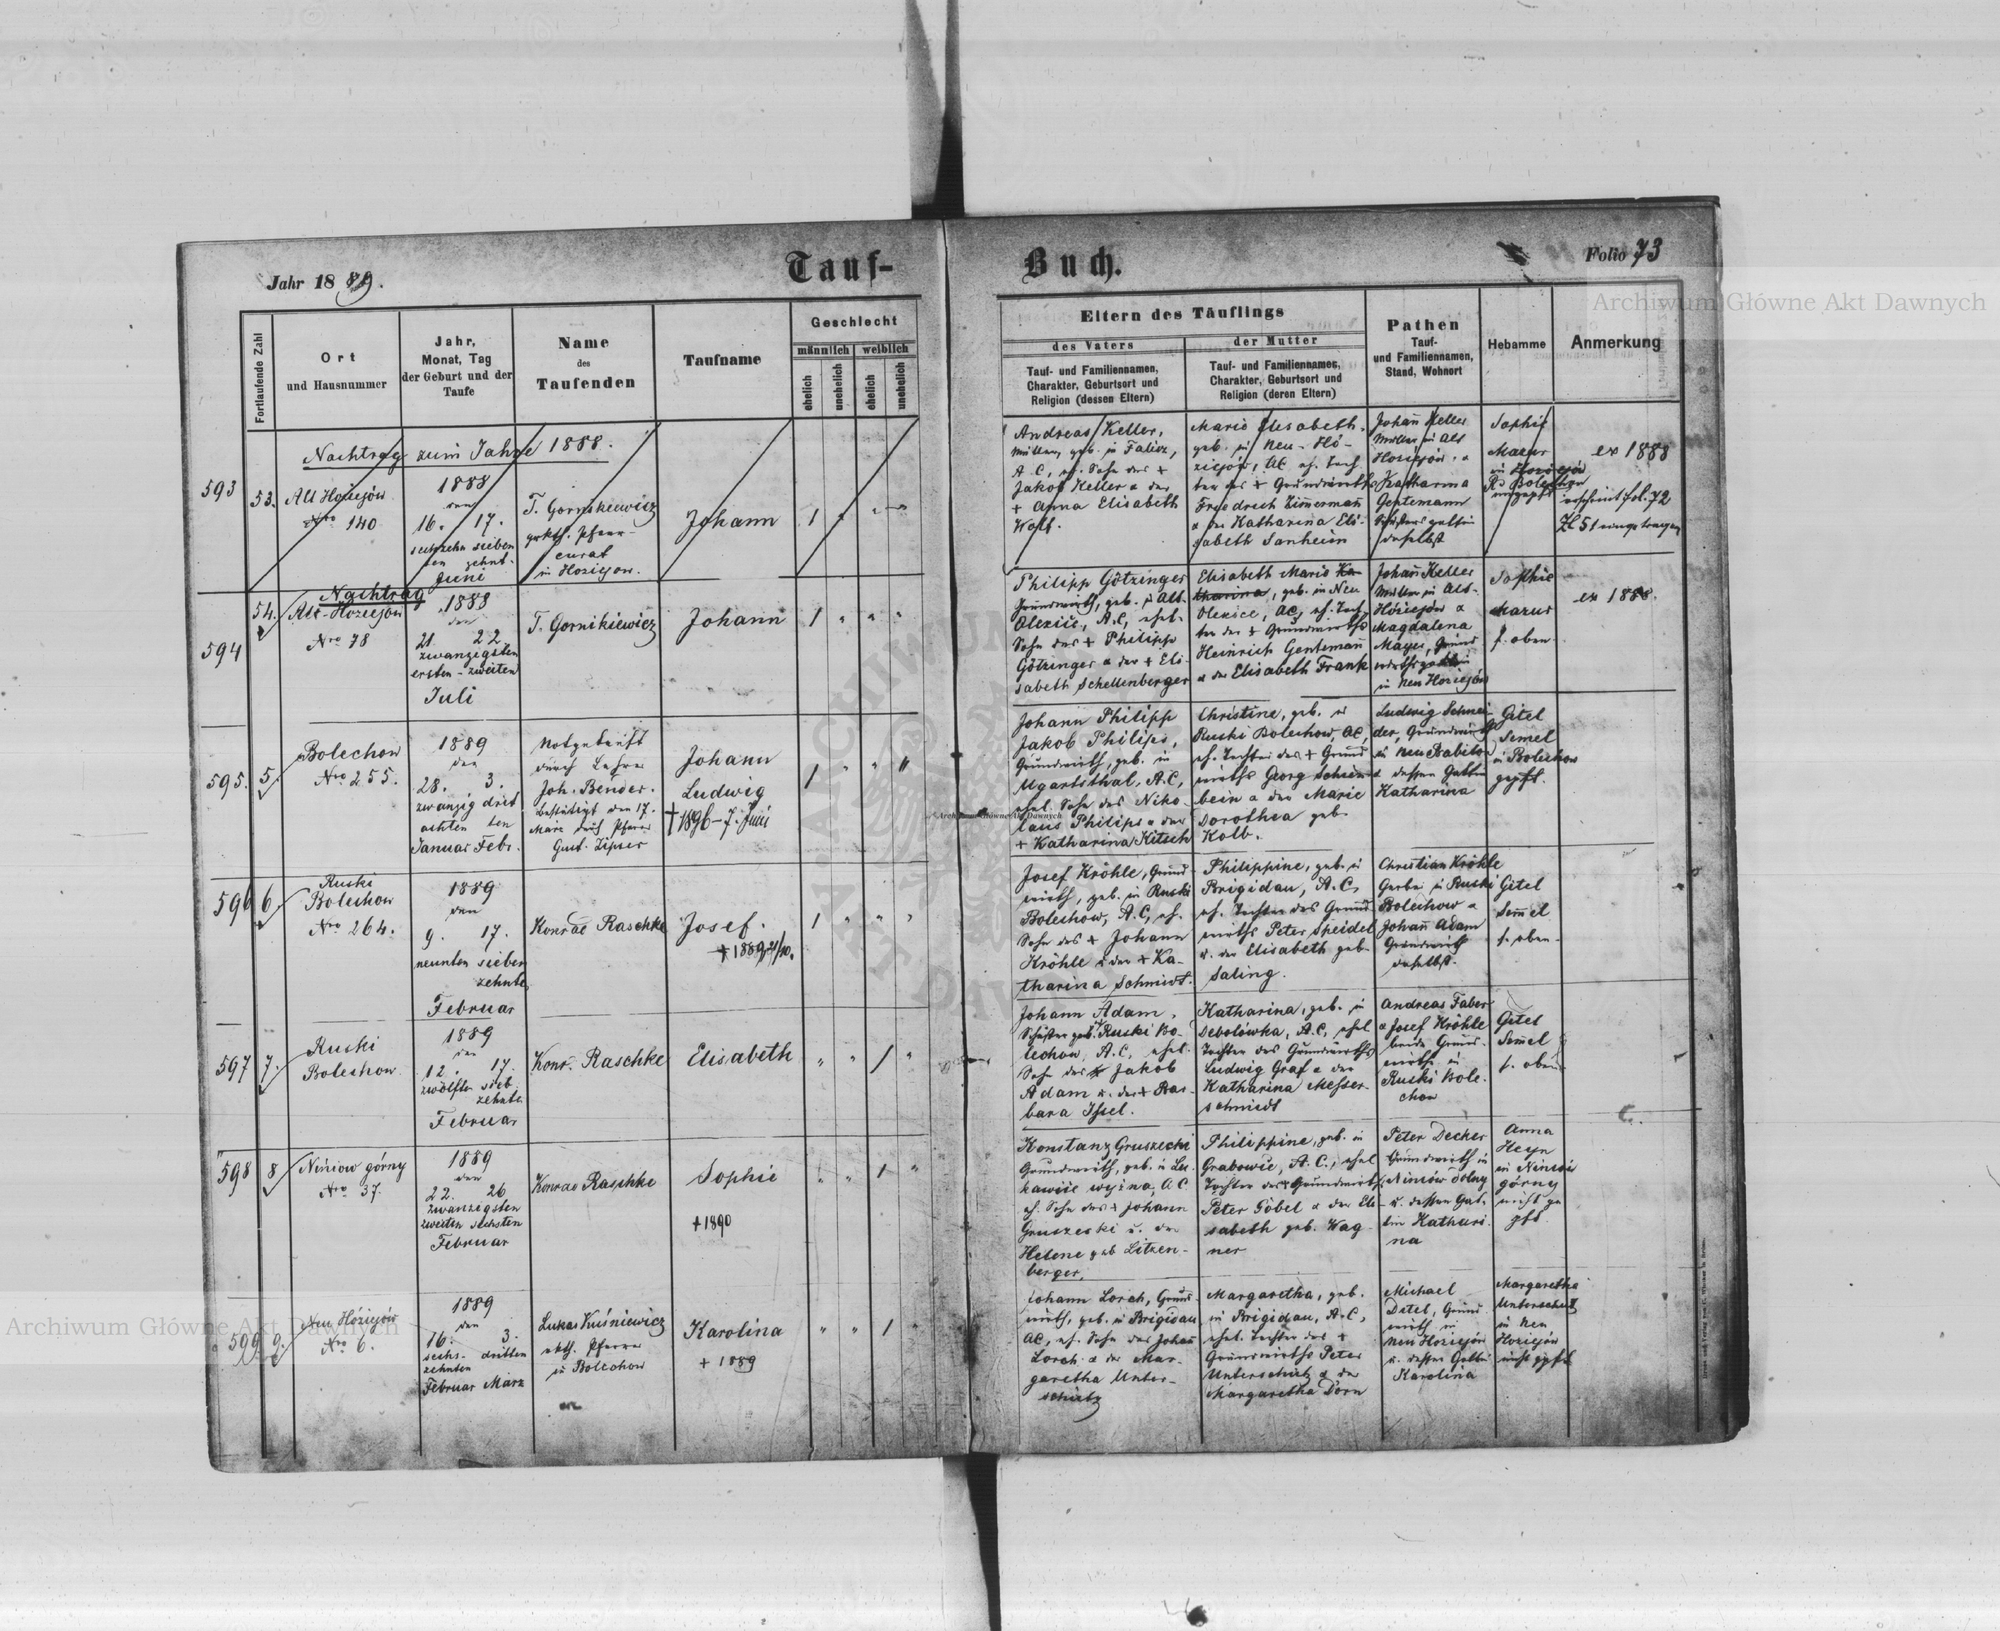 Jahr 1889.
Tauf-Buch.
Folio 73
Archiwum Główne Akt Dawnych
Fortlaufende Zahl
Ort
und Hausnummer
Jahr,
Monat, Tag
der Geburt und der
Taufe
Name
des
Taufenden
Taufname
Geschlecht
männlich
weiblich
ehelich
unehelich
ehelich
unehelich
Eltern des Täuflings
des Vaters
Tauf- und Familiennamen,
Charakter, Geburtsort und
Religion (dessen Eltern)
der Mutter
Tauf- und Familiennamen,
Charakter, Geburtsort und
Religion (deren Eltern)
Pathen
Tauf-
und Familiennamen,
Stand, Wohnort
Hebamme
Anmerkung
Nachtrag zum Jahre 1888.
593
53.
Alt Hoziejów
Nro 140
1888
den
16. 17.
sechzehn sieben
ten zehnt.
Juni
T. Gornikiewicz
grkth. Pfarr-
curat
in Hoziejow.
Johann
1
Andreas Keller,
Müller, geb. in Falisz,
A.C., eh. Sohn des +
Jakob Keller u der
+ Anna Elisabeth
Wolf.
Marie Elisabeth,
geb. in Neu-Ho-
ziejów, AC eh. Toch
ter des + Grundwirths
Friedrich Zimmermann
u der Katharina Eli-
sabeth Sanheim
Johann Keller
Müller in Alt
Hoziejów u
Katharina
Gentemann
daselbst
Sophie
Mazur
in Hoziejów
ungepft
ex 1888
erscheint fol. 72
Zl 51 eingetragen
Nachtrag
594
54.
Alt-Hoziejów
Nro 78
1888
den
21. 22.
zwanzigsten
ersten - zweiten
Juli
T. Gornikiewicz
Johann
1
Philipp Götzinger
Grundwirth, geb. in Alt
Olexice, A.C, ehel.
Sohn des + Philipp
Götzinger u der + Eli-
sabeth Schellenberger
Elisabeth Marie Ka-
tharina, geb. in Neu
Olexice, AC, eh. Toch-
ter des + Grundwirths
Heinrich Gentemann
u der Elisabeth Frank
Johann Keller
Müller in Alt-
Hoziejów u
Magdalena
Mayer, Grund
wirthsgattin
in Neu Hoziejów
Sophie
Mazur
s. oben.
ex 1888.
595.
5.
Bolechow
Nro 255.
1889
den
28. 3.
zwanzig drit
achten ten
Januar Febr.
Notgetauft
durch Lehrer
Joh. Bender.
bestätigt den 17.
März durch Pfarrer
Gust. Zipser
Johann
Ludwig
† 1896 - 7. Juni
1
Johann Philipp
Jakob Philips,
Grundwirth, geb. in
Ugartsthal, A.C.,
ehel. Sohn des Niko-
laus Philips u der
+ Katharina Kitsch
Christine, geb. in
Ruski Bolechow, AC,
eh. Tochter des + Grund
wirths Georg Schein-
bein u der Marie
Dorothea geb.
Kolb.
Ludwig Schnei-
der, Grundwirth
in Neu Babilon
u dessen Gattin
Katharina
Gitel
Semel
in Bolechow
gepft.
Archiwum Główne Akt Dawnych
596
6.
Ruski
Bolechow
Nro 264.
1889
den
9. 17.
neunten sieben
zehnten
Februar
Konrad Raschke
Josef.
+ 1889 21/10.
1
Josef Kröhle, Grund-
wirth, geb. in Ruski
Bolechow, A.C, eh.
Sohn des + Johann
Kröhle u der + Ka-
tharina Schmidt.
Philippine, geb. in
Brigidau, A.C,
eh. Tochter des Grund
wirths Peter Speidel
u. der Elisabeth geb.
Saling.
Christian Kröhle
Gerber in Ruski
Bolechow u
Johann Adam
Grundwirth
daselbst.
Gitel
Semel
s. oben.
597
7.
Ruski
Bolechow
1889
den
12. 17.
zwölften sieb
zehnten
Februar
Konr. Raschke
Elisabeth
1
Johann Adam,
Schuster geb. in Ruski Bo-
lechow, A.C., ehel.
Sohn des Jakob
Adam u. der + Bar-
bara Issel.
Katharina, geb. in
Debolówka, A.C, ehel
Tochter des Grundwirths
Ludwig Graf u der
Katharina Messer-
schmidt
Andreas Faber
u Josef Kröhle
beide Grund-
wirthe in
Ruski Bole-
chow
Gitel
Semel
s. oben
598
8
Niniow górny
Nro 37.
1889
den
22. 26
zwanzigsten
zweiten sechsten
Februar
Konrad Raschke
Sophie
+ 1890
1
Konstanz Gruszecki
Grundwirth, geb. in Lu-
kawice wyżna, AC
eh. Sohn des + Johann
Gruszecki u. der
Helene geb Litzen-
berger.
Philippine, geb. in
Grabowie, A.C., ehel
Tochter des + Grundwirths
Peter Göbel u der Eli-
sabeth geb. Wag-
ner
Peter Decker
Grundwirth in
Niniów dolny
u. dessen Gat-
tin Kathari-
na
Anna
Heyn
in Niniów
górny
nicht ge
pft.
599
9.
Neu Hoziejów
Nro 6.
1889
den
16. 3.
sechs- dritten
zehnten
Februar März
Lukas Kuśniewicz
rkth. Pfarrer
in Bolechow
Karolina
+ 1889
1
Johann Lorch, Grund-
wirth, geb. in Brigidau
AC, eh. Sohn des Johann
Lorch u der Mar-
garetha Unter-
schütz
Margaretha, geb.
in Brigidau, A.C,
ehel. Tochter des +
Grundwirths Peter
Unterschütz u der
Margaretha Dorn
Michael
Ditel, Grund
wirth in
Neu Hoziejów
u. dessen Gattin
Karolina
Margaretha
Unterschütz
in Neu
Hoziejów
nicht gpft
Archiwum Główne Akt Dawnych